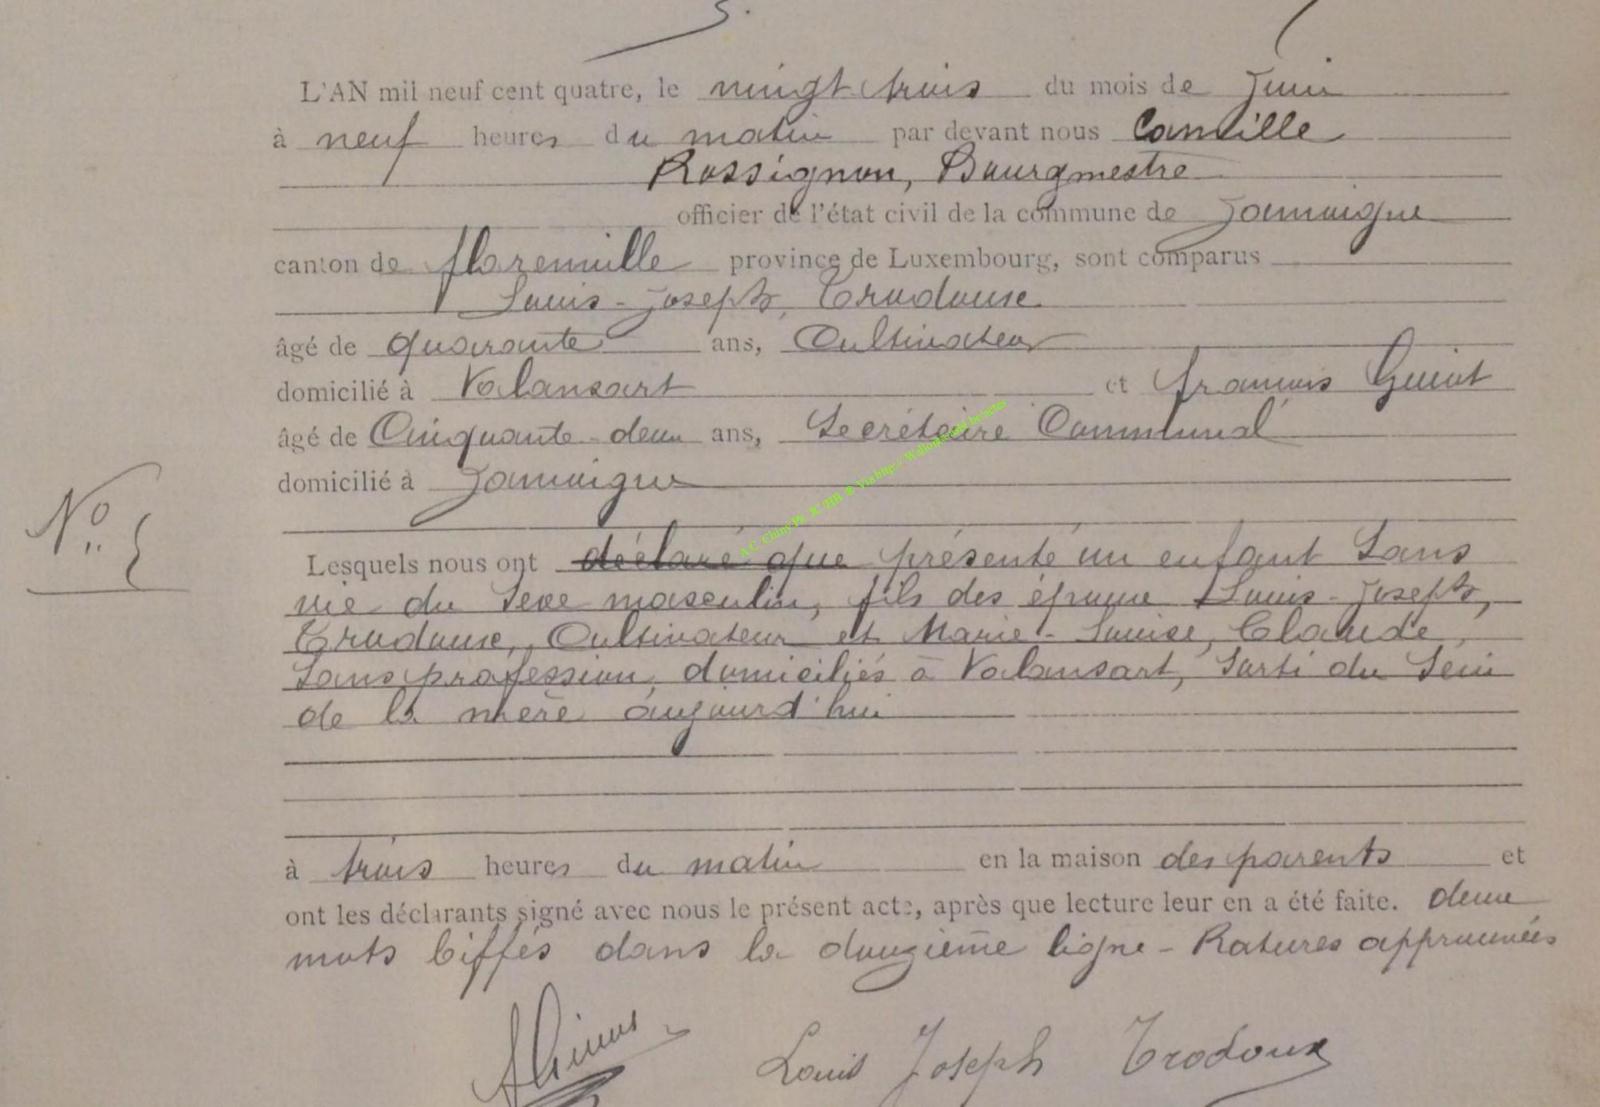 L'AN mil neuf cent quatre, le vingt trois du mois de Juin
à neuf heures du matin par devant nous Camille
Rossignon, Bourgmestre
officier de l'état civil de la commune de Jamoigne
canton de florenville province de Luxembourg, sont comparus
Louis-Joseph, Trodoux
âgé de quarante ans, Cultivateur
domicilié à Valansart et francois
âgé de Cinquante-deux ans, Secrétaire Communal
domicilié à Jamoigne
No 5
Lesquels nous ont déclaré que présenté un enfant Sans
vie du Sexe masculin, fils des époux Louis-Joseph,
Trodoux, Cultivateur et Marie-Louise, Claude,
Sans profession, domiciliés à Valansart, Sorti du Sein
de la mère aujourd'hui
à trois heures du matin en la maison des parents et
ont les déclarants signé avec nous le présent acte, après que lecture leur en a été faite. deux
mots biffés dans la douzième ligne - Ratures approuvées
Louis Joseph Trodoux